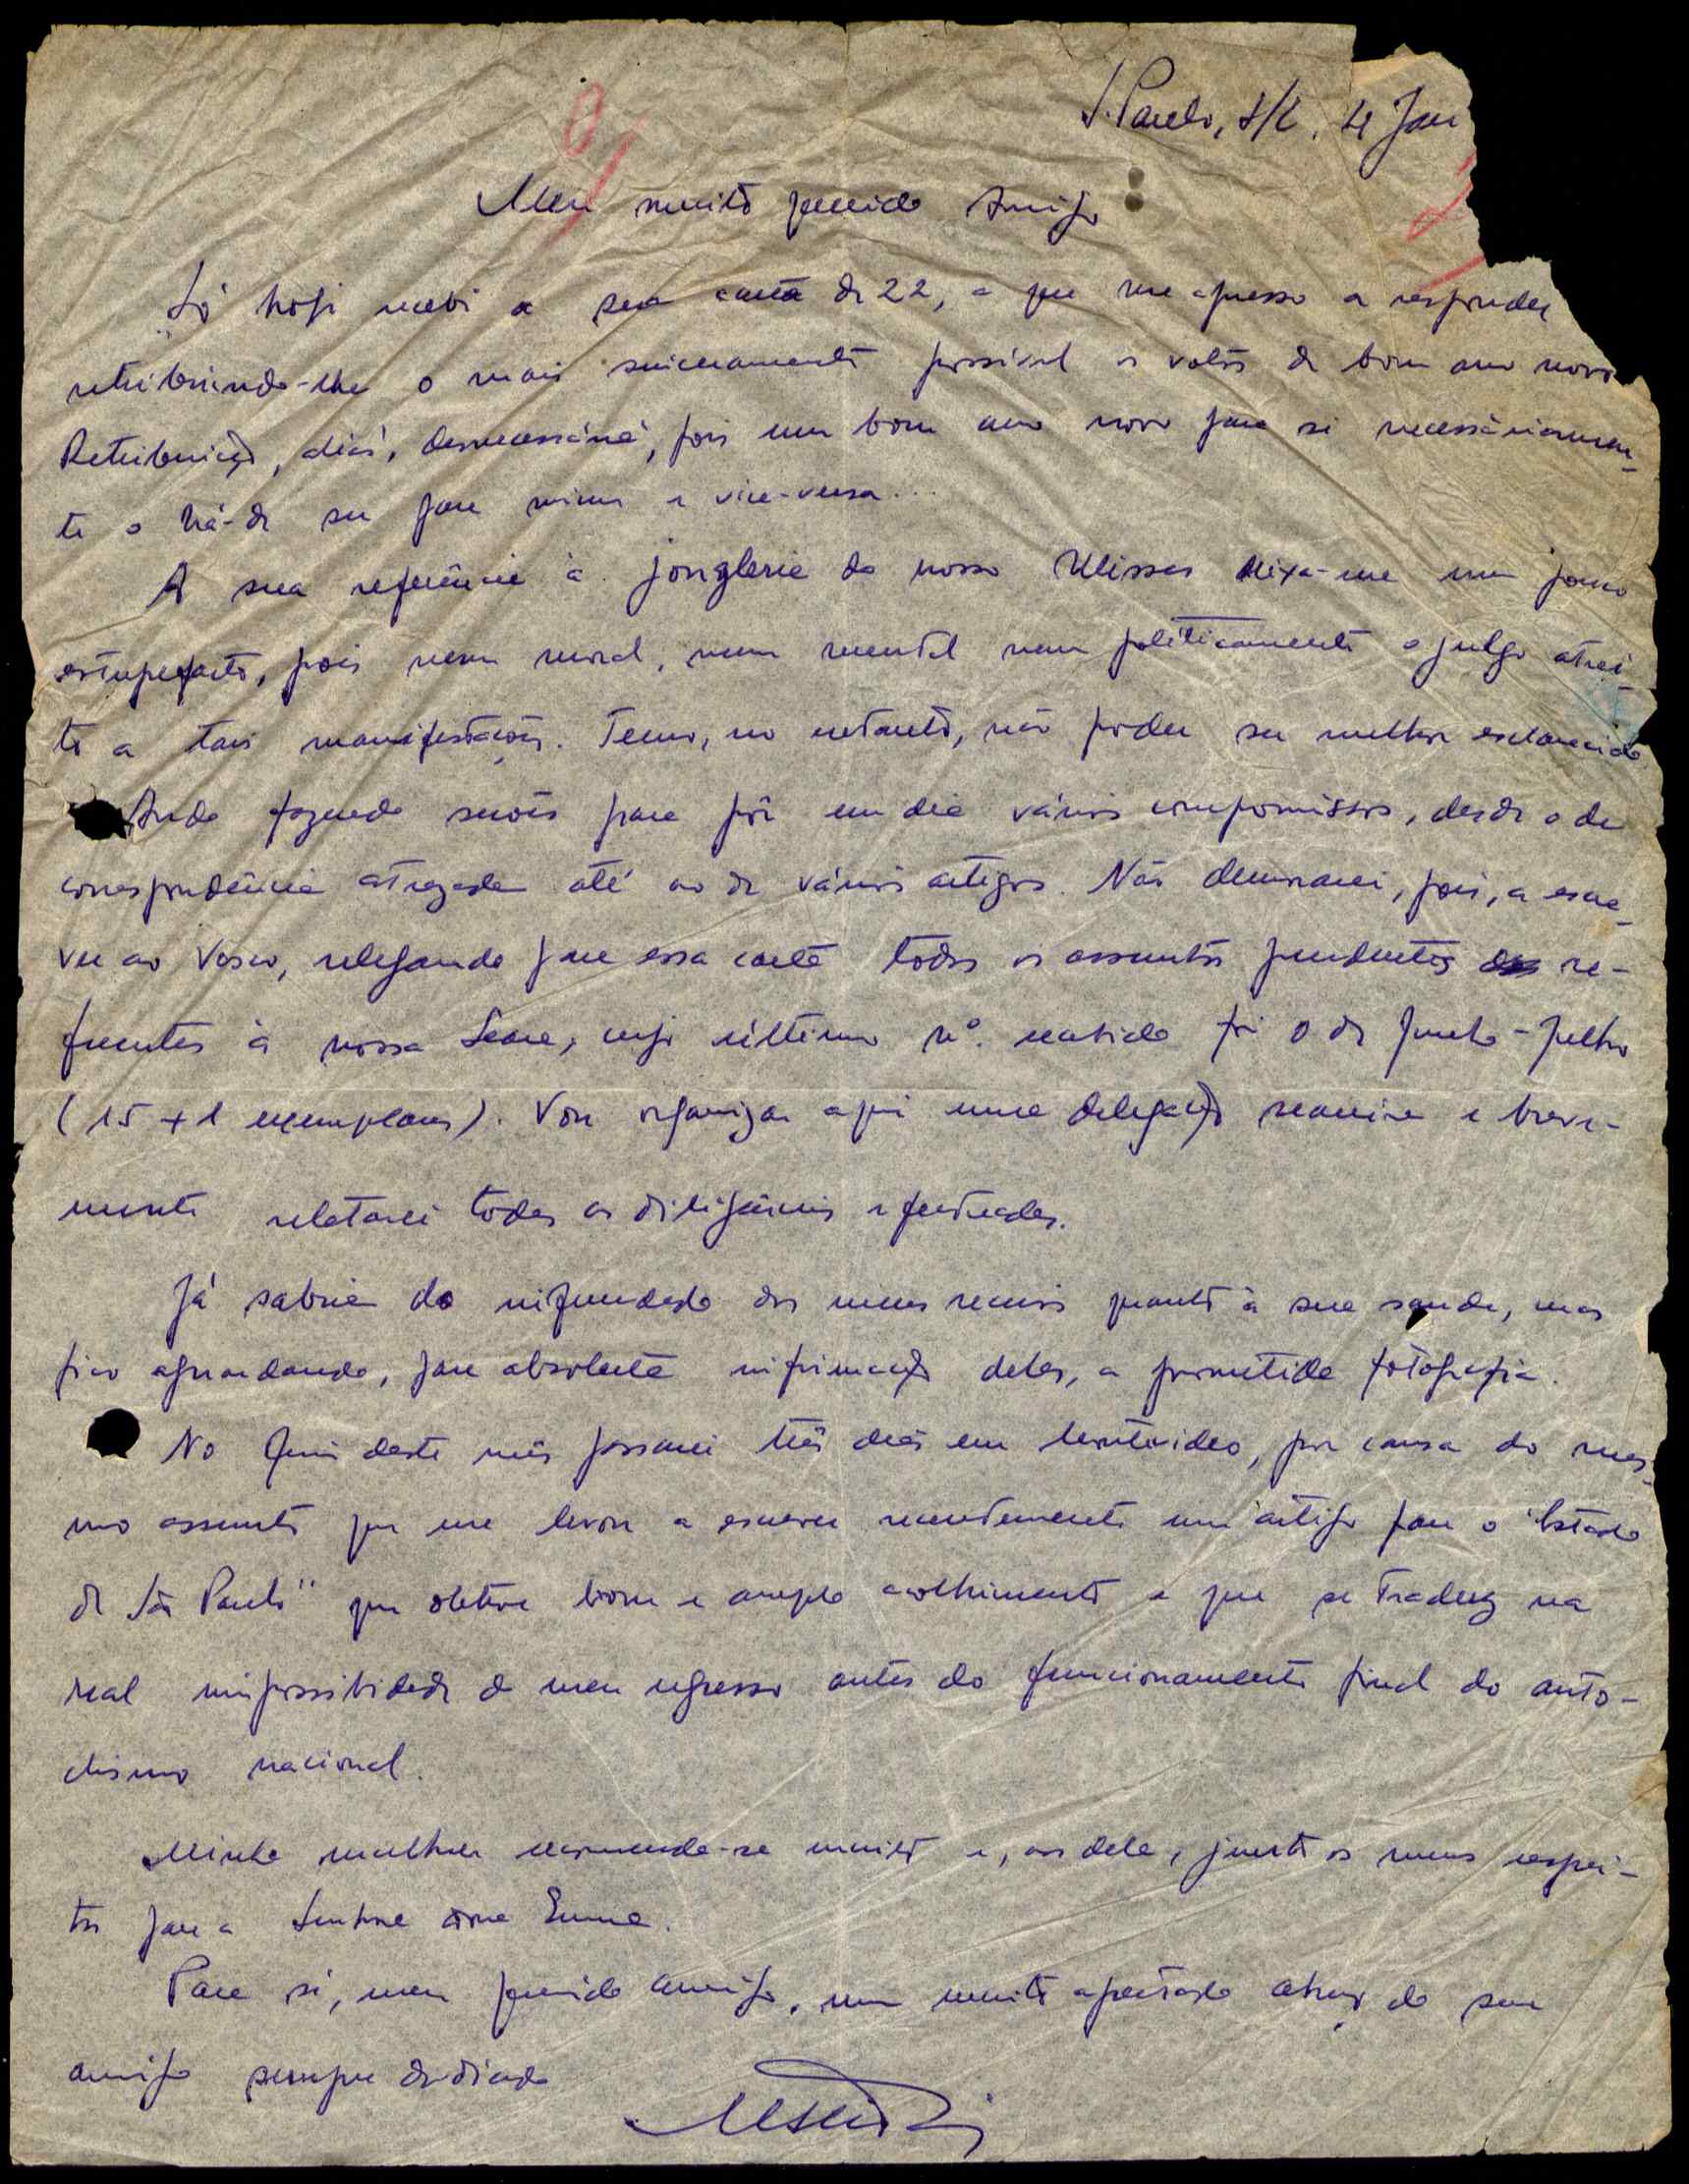 S. Paulo, s/c, 4 Jan
Meu muito querido Amigo
Só hoje recebi a sua carta de 22, a que me apresso a responder
retribuindo-lhe o mais sinceramente possível os votos de bom ano novo.
Retribuição, aliás, desnecessária, pois um bom ano novo para si necessàriamen-
te o há-de ser para mim e vice-versa...
A sua referência à jonglerie do nosso Ulisses deixa-me um pouco
estupefacto, pois nem moral, nem mental nem politicamente o julgo atrei-
to a tais manifestações. Temo, no entanto, não poder ser melhor esclarecido.
Ando fazendo serões para pôr em dia vários compromissos, desde o da
correspondência atrazada até ao de vários artigos. Não demorarei, pois, a escre-
ver ao Vasco, relegando para essa carta todos os assuntos pendentes re-
ferentes à nossa Seara, cujo último nº. recebido foi o de Junho-Julho
(15 + 1 exemplares). Vou organizar aqui uma delegação seareira e breve-
mente relatarei todas as diligências efectuadas.
Já sabia do infundado dos meus receios quanto à sua saude, mas
fico aguardando, para absoluta delas, a prometida fotografia.
No fim deste mês passarei três dias em Montevideo, por causa do mes-
mo assunto que me levou a escrever recentemente um artigo para o "Estado
de São Paulo" que obteve bom e amplo acolhimento e que se traduz na
real impossibilidade do meu regresso antes do funcionamento final do auto-
clismo nacional.
Minha mulher recomenda-se muito e, aos dela, junto os meus respei-
tos para a Senhora Dona Emma.
Para si, meu querido amigo, um muito apertado abraço do seu
amigo sempre dedicado